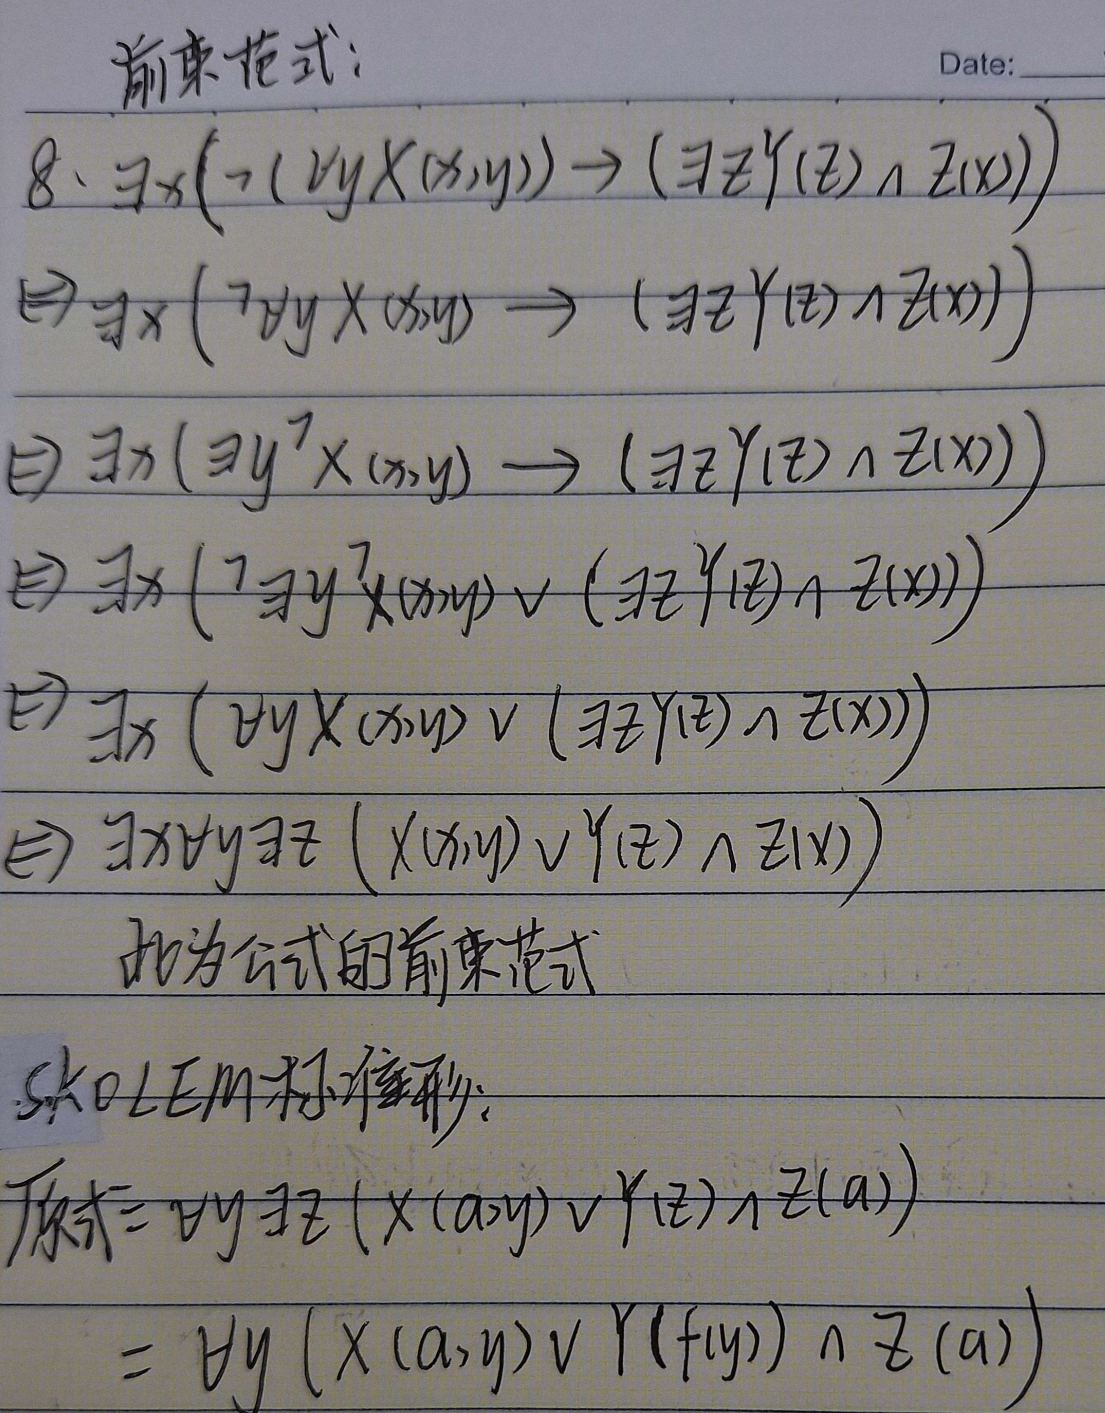 前束范式:
Date:
8. ∃x(¬(∀yX(x,y))→(∃zY(z)∧Z(x)))
⇔∃x(¬∀yX(x,y)→(∃zY(z)∧Z(x)))
⇔∃x(∃y¬X(x,y)→(∃zY(z)∧Z(x)))
⇔∃x(¬∃y¬X(x,y)∨(∃zY(z)∧Z(x)))
⇔∃x(∀yX(x,y)∨(∃zY(z)∧Z(x)))
⇔∃x∀y∃z(X(x,y)∨Y(z)∧Z(x))
此为公式的前束范式
SKOLEM标准形:
原式=∀y∃z(X(a,y)∨Y(z)∧Z(a))
=∀y(X(a,y)∨Y(f(y))∧Z(a))